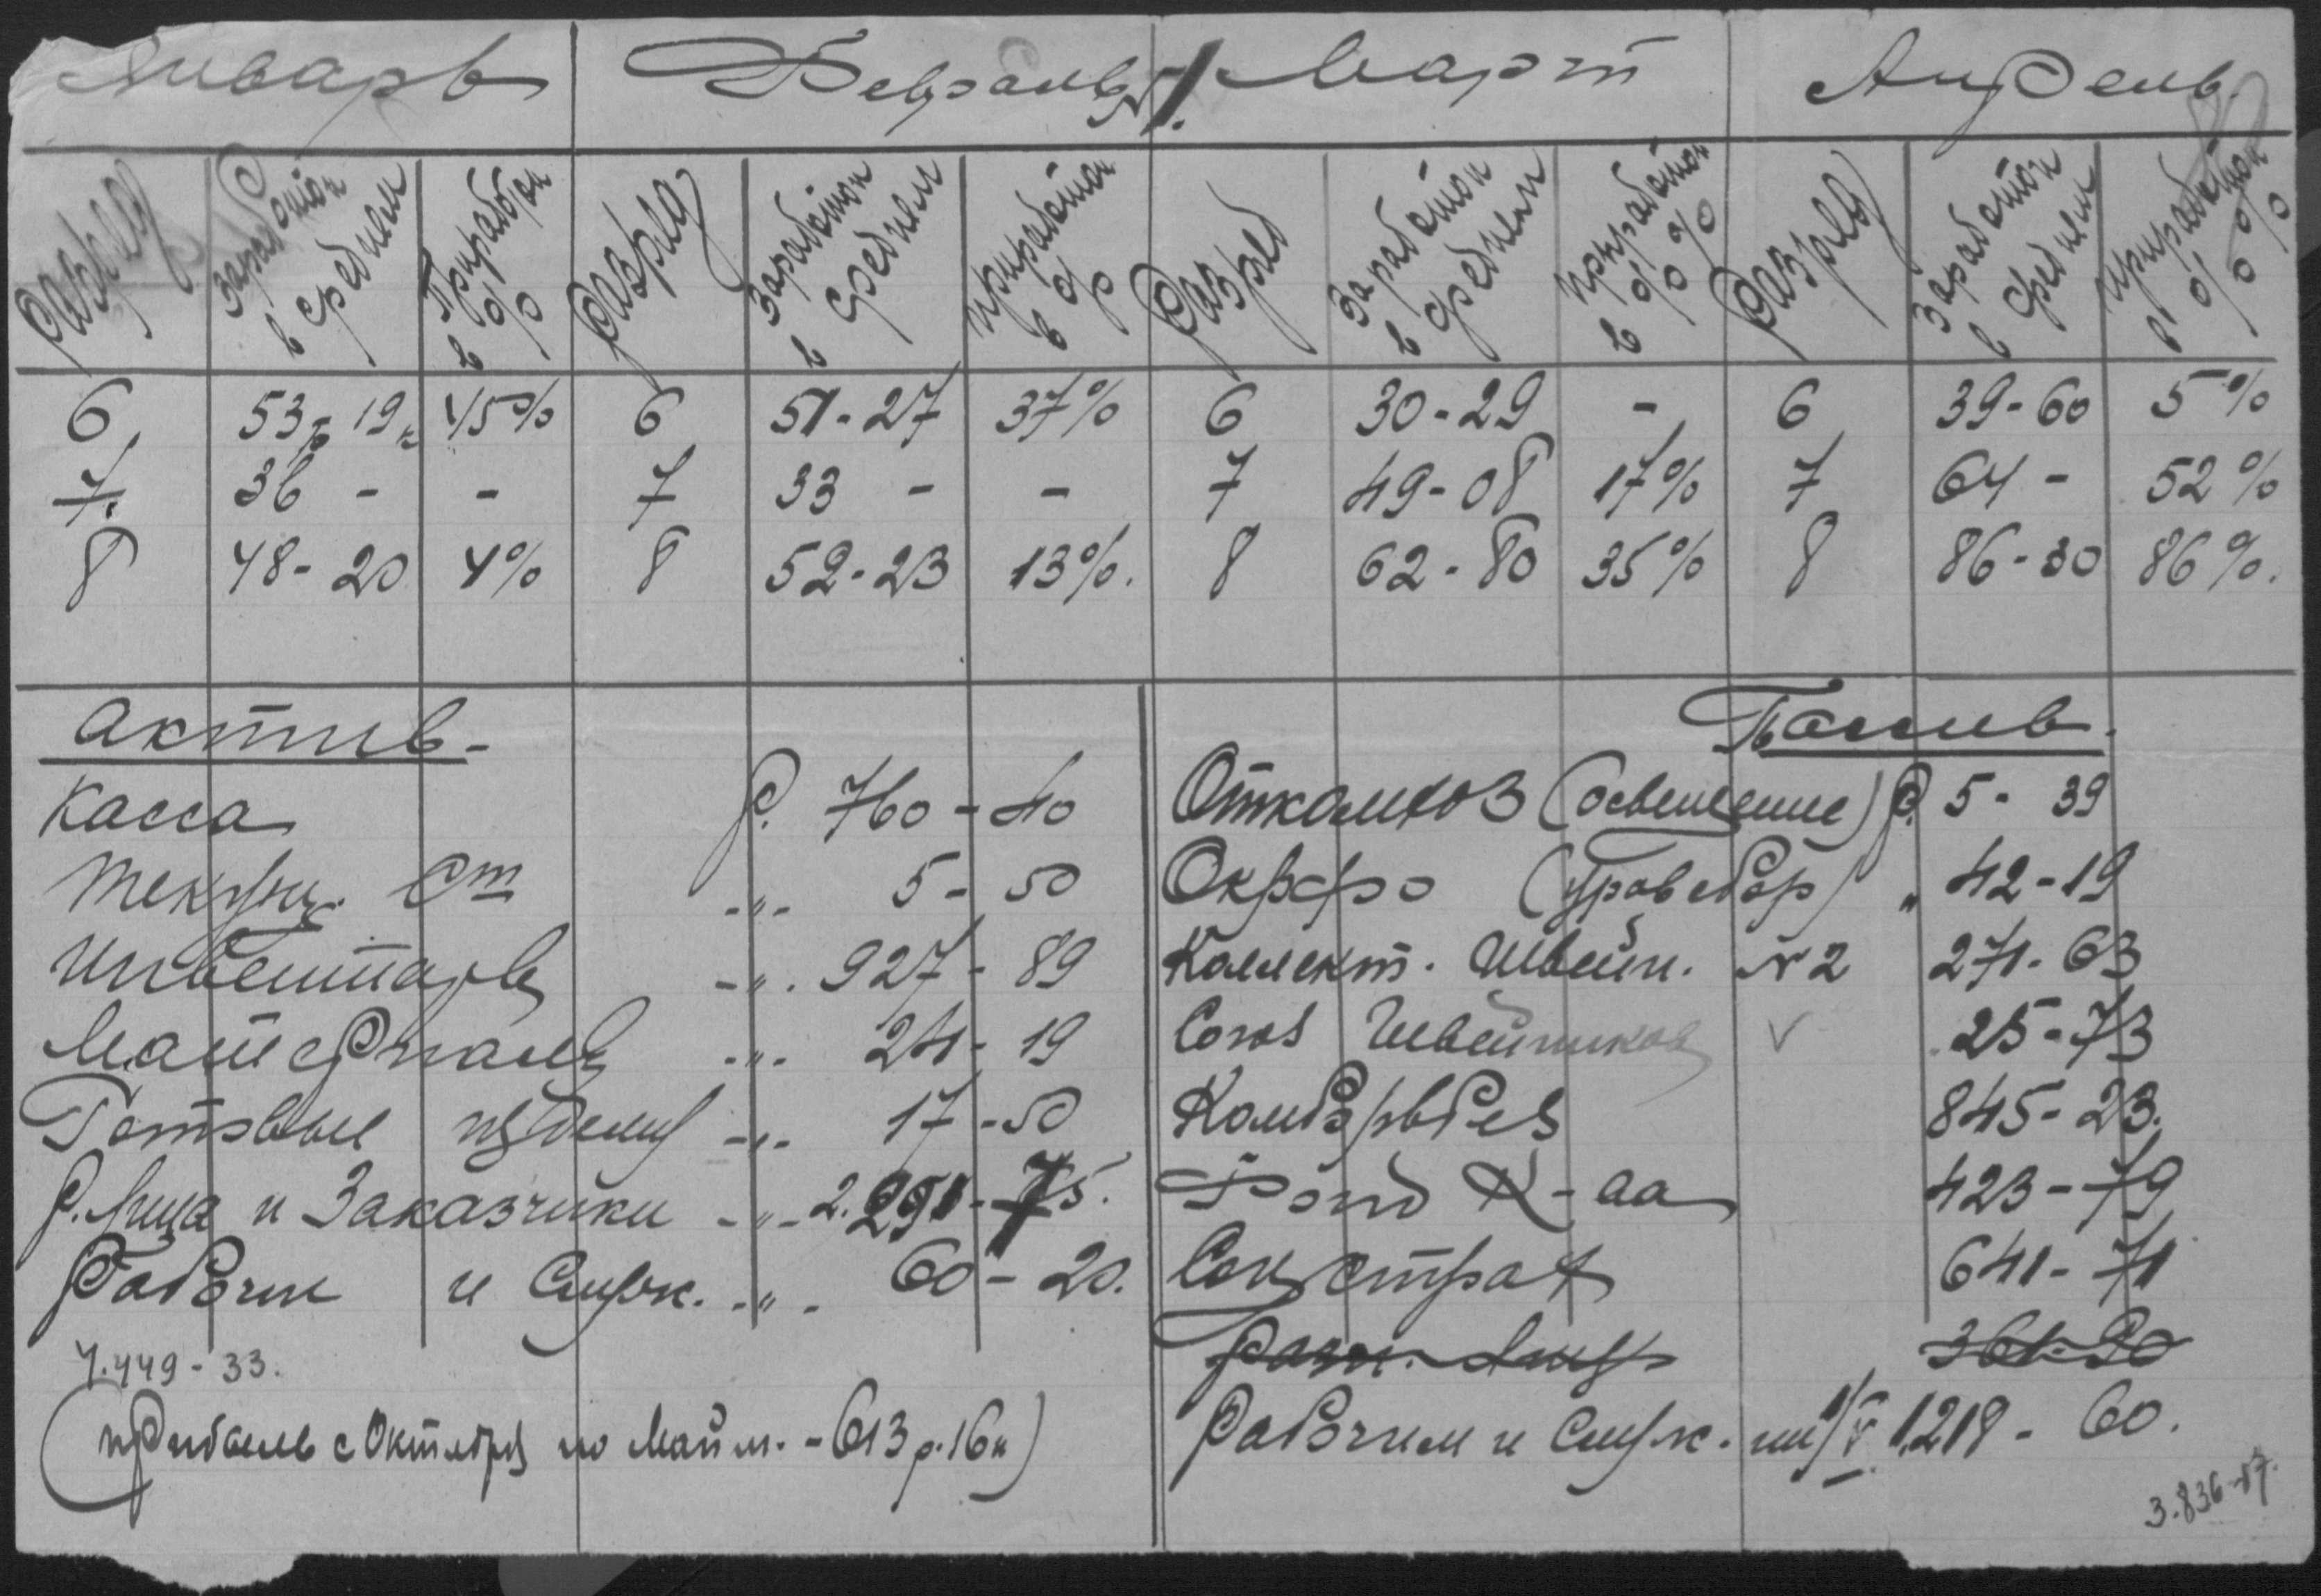 Январь Февраль Март Апрель.
№1.
разряд заработок в среднем Приработок в % разряд заработок в среднем приработок в % разряд заработок в среднем прработок в % разряд заработок в среднем приработок в %
6 53р 19к 45% 6 51-27 37% 6 30-29 - 6 39-60 5%
7. 36 - - 7 33 - - 7 49-08 17% 7 64 - 52%
8 48-20 4% 8 52-23 13%. 8 62-80 35% 8 86-30 86%.
Актив-
Касса р. 760-40
Текущ. Ст -"- 5-50
Инвентарь -"- 927-89
Материалы -"- 19
Готовые изделия -"- 17-50
р. лица и Заказчики -"- 2.291-75.
Рабочие и Служ. -"- 60-20.
4.449-33.
(прибыль с Октября по Май м. - 613 р. 16к)
Пассив.
Откомхоз (освещение) р. 5-39
Окрфо " 42-19
Коллект. Швейн. №2 271-63
Союз Швейников V 25-73
845-23.
Фонд К-аа 423-79
Соцстрах 641-71
Рабочим и Служ. на 1/V 1218-60.
3.836-57.